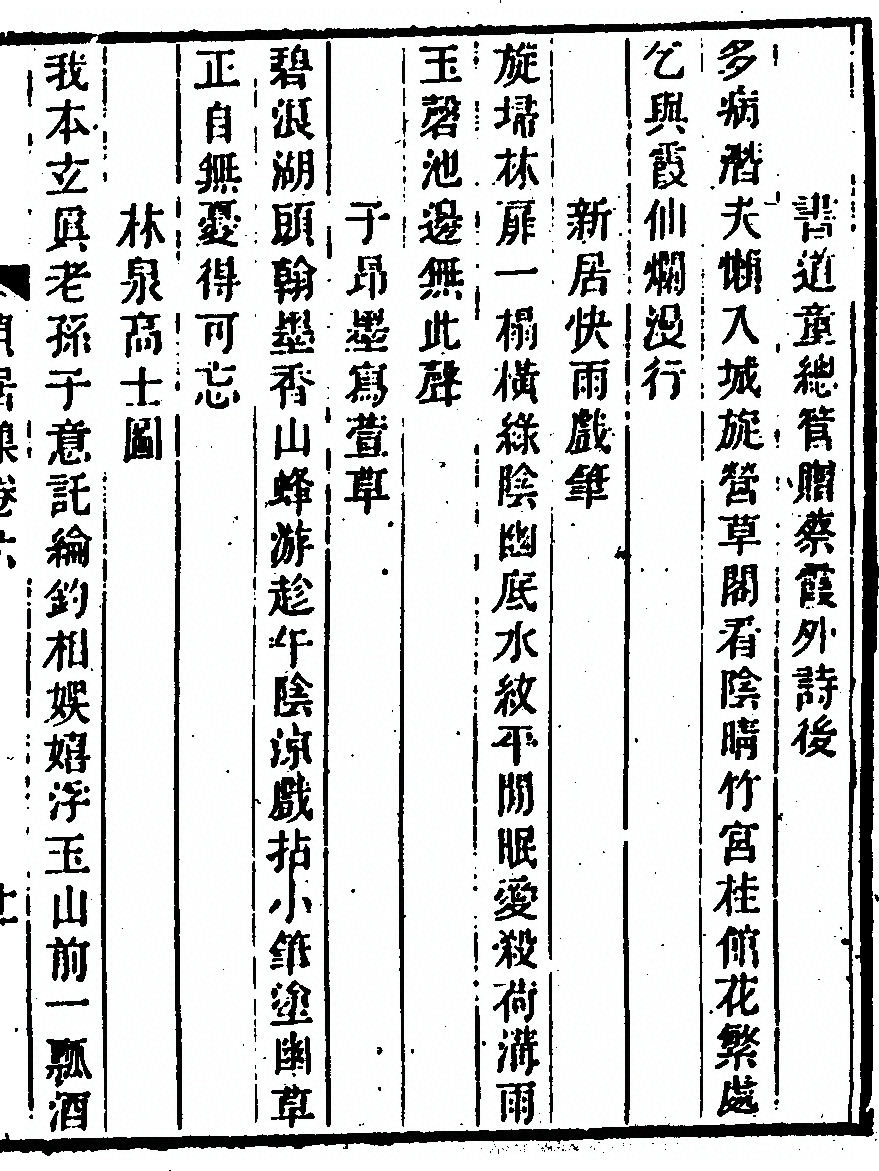 書道童總管贈蔡霞外詩後
多病潛夫懶入城旋營草閣看陰晴竹宮桂館花繁處
乞與霞仙爛漫行
新居快雨戲筆
旋埽林扉一榻橫綠陰幽底水紋平閒眠愛殺荷溝雨
玉磬池邊無此聲
子昂墨寫萱草
碧浪湖頭翰墨香山蜂游趁午陰涼戲拈小筆塗幽草
正自無憂得可忘
林泉高士圖
我本玄眞老孫子意託綸釣相娛嬉浮玉山前一瓢酒
居集卷六